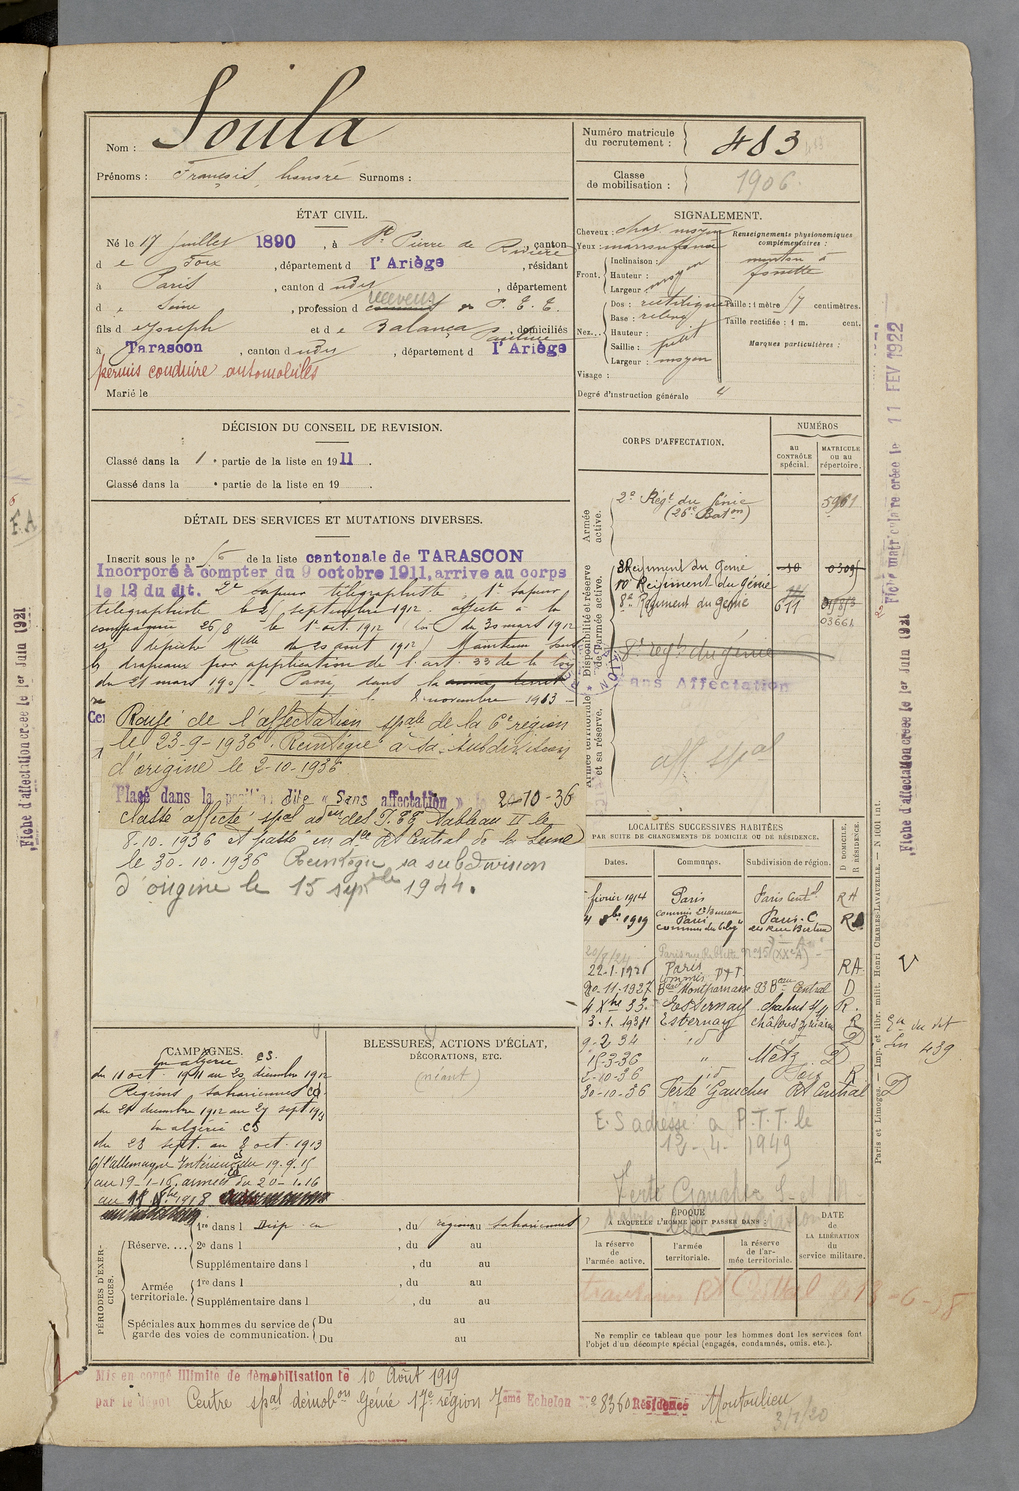 Nom : Soula
Prénoms : François, honoré Surnoms :
Numéro matricule du recrutement : 483
Classe de mobilisation : 1906.
ÉTAT CIVIL.
Né le 17 juillet 1890, à St Pierre de Rivière, canton
d e Foix, département d l'Ariège, résidant
à Paris, canton d udit, département
d e Seine, profession d receveur P. T. T.
fils d e Joseph et d e Balança Pauline, domiciliés
à Tarascon, canton d udit, département d l'Ariège
permis conduire automobiles
Marié le
SIGNALEMENT.
Cheveux : chat. moyen
Yeux : marron foncé
Front.
Inclinaison :
Hauteur : moyen
Largeur
Nez...
Dos : rectiligne
Base : relevé
Hauteur :
Saillie : petit
Largeur : moyen
Visage :
Degré d'instruction générale 4
Renseignements physionomiques complémentaires :
menton à fossette
Taille : 1 mètre 57 centimètres.
Taille rectifiée : 1 m. cent.
Marques particulières :
DÉCISION DU CONSEIL DE REVISION.
Classé dans la 1e partie de la liste en 1911.
Classé dans la e partie de la liste en 19 .
DÉTAIL DES SERVICES ET MUTATIONS DIVERSES.
Inscrit sous le no 16 de la liste cantonale de TARASCON
Incorporé à compter du 9 octobre 1911, arrive au corps
le 12 du dit. 2e sapeur télégraphiste, 1r sapeur
télégraphiste le 2 septembre 1912. affecté à la
compagnie 26/8 le 1er oct. 1912 Loi du 30 mars 1912
et dépêche Mlle du 20 août 1912 Maintenu sous
les drapeaux par application de l'art. 33 de la loi
du 21 mars 1905. Passé dans la
8 novembre 1913
Rayé de l'affectation spale de la 6e région
le 23-9-1936. Réintégré à la subdivision
d'origine le 2-10-1936
Placé dans la position dite « Sans affectation » le 2-10-36
Classé affecté spal au des P.T.T. Tableau II le
8.10.1936 et passé en dle Rt Central de la Seine
le 30.10.1936 Réintégré sa subdivision
d'origine le 15 sepbre 1944.
CORPS D'AFFECTATION.
NUMÉROS
au CONTRÔLE spécial.
MATRICULE ou au répertoire.
Armée active.
2e Régt du Génie 5961
(26e Baton)
Disponibilité et réserve de l'armée active.
8 Régiment du Génie
10e Régiment du Génie
8e Régiment du génie 611
03661
8e régt du génie
Sans Affectation
Armée territoriale et sa réserve.
aff. spal
LOCALITÉS SUCCESSIVES HABITÉES
PAR SUITE DE CHANGEMENTS DE DOMICILE OU DE RÉSIDENCE.
Dates. Communes. Subdivision de région. D DOMICILE, R RÉSIDENCE.
février 1914 Paris Paris Central RA
4 8bre 1919 commis 23 Bureau Paris Paris. C R
22-1-1926 Paris RA
commis P.T.T.
20-11-1927 Bard Montparnasse 93 Beau Central D
4 Xbre 33. Esternay Chalons s/M R.
3.1.1934 Esternay châlons s/ R
9-2 34 id D
15-3-36 " Metz D
2-10-36 id Foix R
30-10-36 Ferté Gaucher Rt Central D
E.S adresse à P.T.T. le
12-4-1949
Ferté Gaucher S-et-M
CAMPAGNES.
En algérie CS.
du 11 oct 1911 au 20 décembre 1912
Régions sahariennes CD.
du 21 décembre 1912 au 27 sept 1913
En algérie CS
du 28 sept. au 8 oct. 1913
C/ l'allemagne Intérieur CS du 19.9.15
au 19-1-16, armées CD du 20-1-16
BLESSURES, ACTIONS D'ÉCLAT,
DÉCORATIONS, ETC.
(néant)
PÉRIODES D'EXERCICES.
Réserve....
1re dans l Disp. en, du régions au sahariennes
2e dans l , du au
Supplémentaire dans l , du au
Armée territoriale.
1re dans l , du au
Supplémentaire dans l , du au
Spéciales aux hommes du service de garde des voies de communication.
Du au
Du au
ÉPOQUE
A LAQUELLE L'HOMME DOIT PASSER DANS :
la réserve de l'armée active.
l'armée territoriale.
la réserve de l'armée territoriale.
DATE de LA LIBÉRATION du service militaire.
Rt Central le 18-6-38
Ne remplir ce tableau que pour les hommes dont les services font
l'objet d'un décompte spécial (engagés, condamnés, omis. etc.).
Mis en congé illimité de démobilisation le 10 Août 1919
par le dépôt Centre spal démobon Génie 17e région 7eme Echelon No 8360 Résidence Montoulieu
3/1/20
Fiche matriculaire créée le 11 FEV 1922
Fiche d'affectation créée le 1er Juin 1921
Paris et Limoges. — Imp. et libr. milit. Henri CHARLES-LAVAUZELLE. — N 1001 int.
Fiche d'affectation créée le 1er Juin 1921
F.A